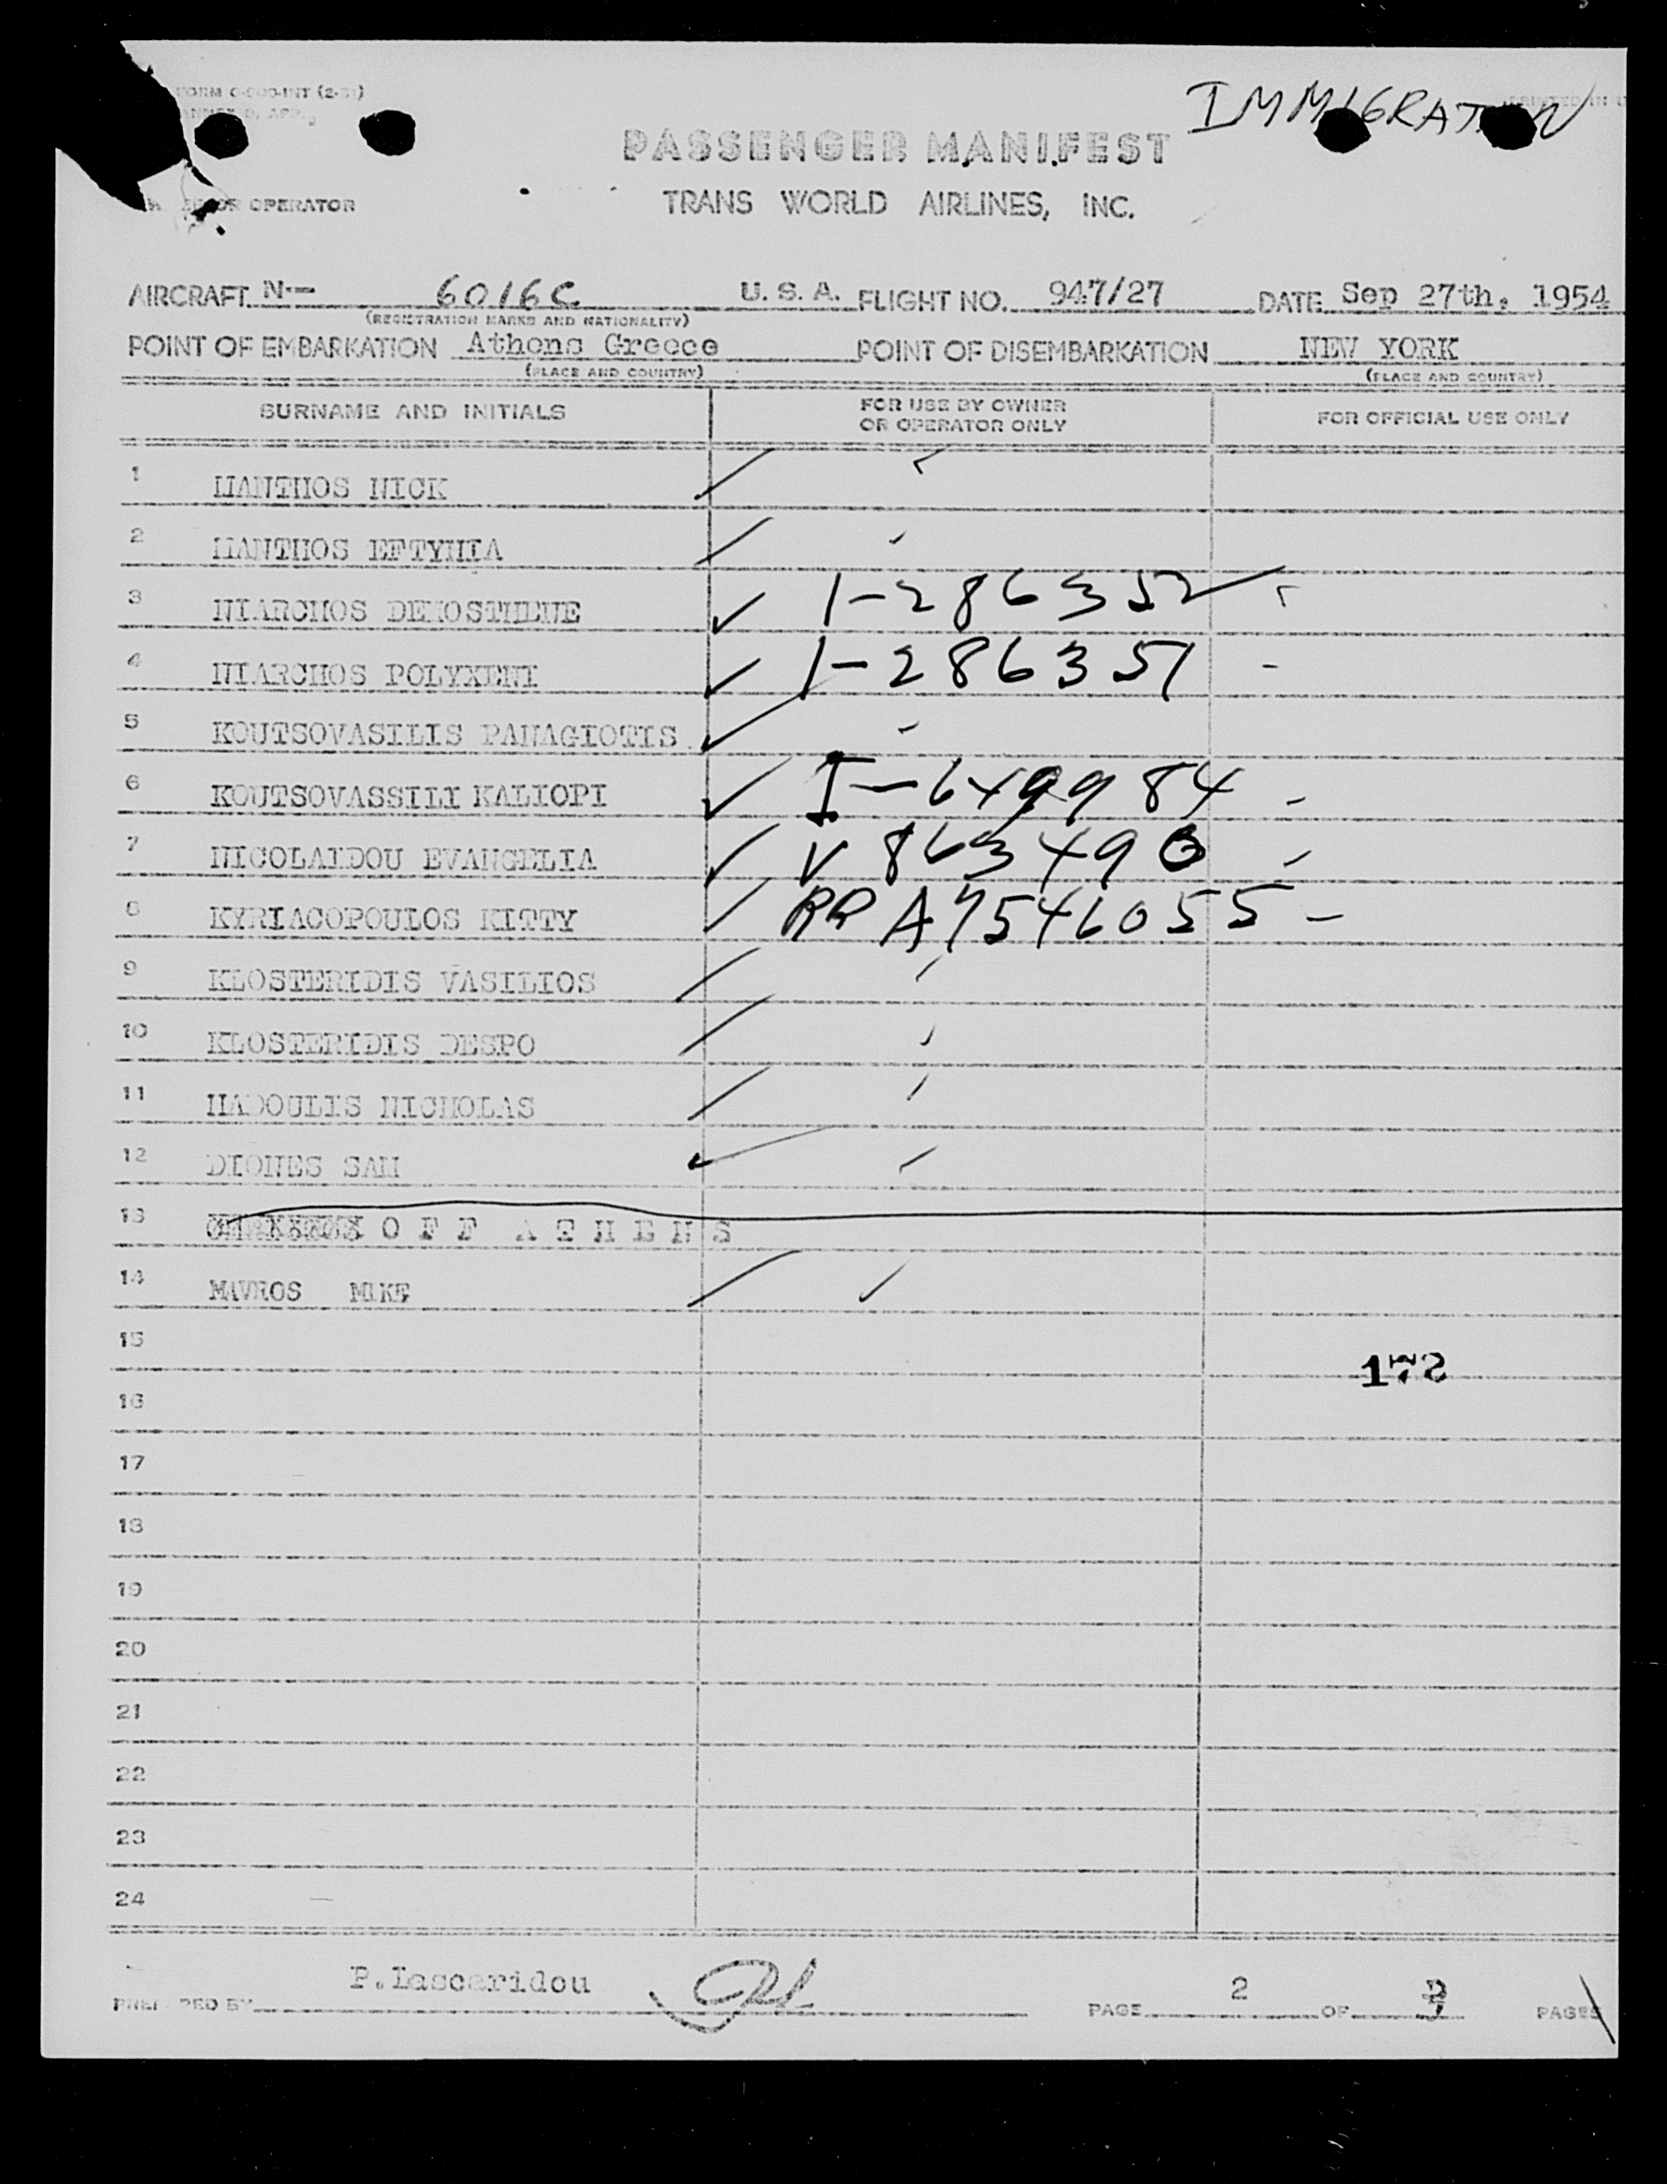 IMMIGRATION
FORM
PASSENGER MANIFEST
OR OPERATOR
TRANS WORLD AIRLINES, INC.
AIRCRAFT N-- 6016C U. S. A. FLIGHT NO. 947/27 DATE Sep 27th, 1954
(REGISTRATION MARKS AND NATIONALITY)
POINT OF EMBARKATION Athens Greece POINT OF DISEMBARKATION NEW YORK
(PLACE AND COUNTRY) (PLACE AND COUNTRY)
SURNAME AND INITIALS FOR USE BY OWNER OR OPERATOR ONLY FOR OFFICIAL USE ONLY
1 MANTHOS NICK
2 MANTHOS EFTYHIA
3 NIARCHOS DEMOSTHENE 1-286352
4 NIARCHOS POLYXENI 1-286351
5 KOUTSOVASILIS PANAGIOTIS
6 KOUTSOVASSILI KALIOPI I-649984
7 NICOLAIDOU EVANGELIA V 863490
8 KYRIACOPOULOS KITTY RR A7546055
9 KLOSTERIDIS VASILIOS
10 KLOSTERIDIS DESPO
11 NICHOLAS
12 DIONES SAM
13 O F F A T H E N S
14 MAVROS MIKE
15
16
17
18
19
20
21
22
23
24
P.Lascaridou
PREPARED BY PAGE 2 OF 3 PAGES